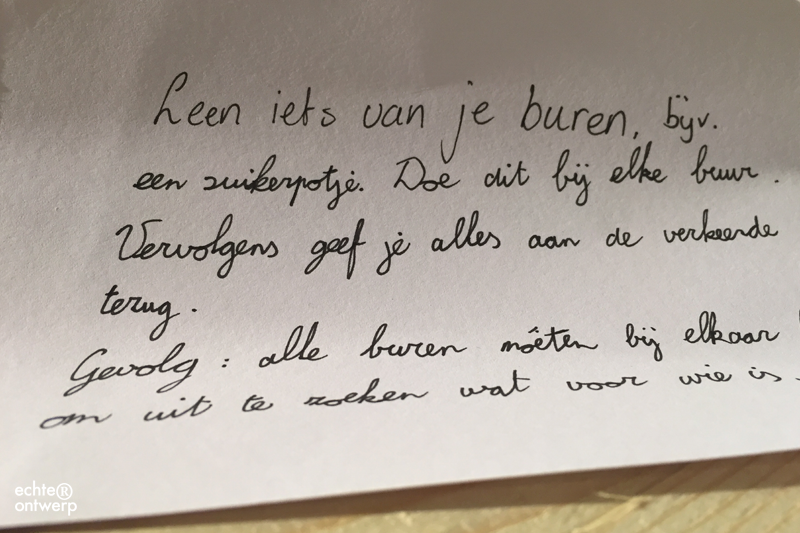 Leen iets van je buren, bijv.
een suikerpotje. Doe dit bij elke buur.
Vervolgens geef je alles aan de verkeerde
terug.
Gevolg: alle buren móéten bij elkaar
om uit te zoeken wat voor wie is.
echte®
ontwerp